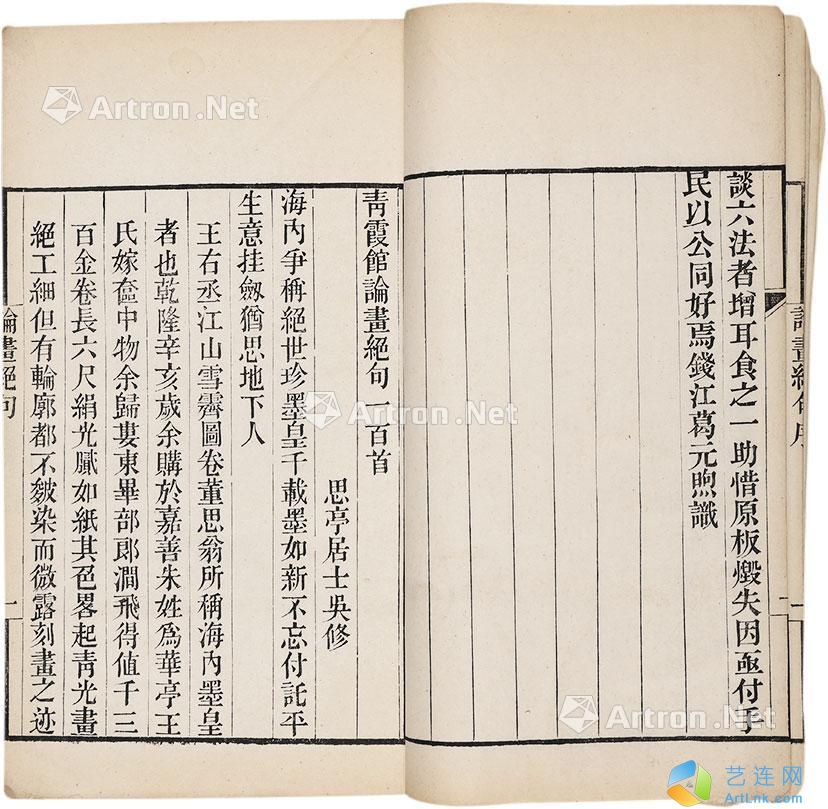 談六法者增耳食之一助惜原板燬失因亟付手
民以公同好焉錢江葛元煦識
論畫絕句序
一
青霞館論畫絕句一百首
思亭居士吳修
海內爭稱絕世珍墨皇千載墨如新不忘付託平
生意挂劔猶思地下人
王右丞江山雪霽圖卷董思翁所稱海內墨皇
者也乾隆辛亥歲余購於嘉善朱姓爲華亭王
氏嫁奩中物余歸婁東畢部郎澗飛得値千三
百金卷長六尺絹光膩如紙其色畧起靑光畫
絕工細但有輪廓都不皴染而微露刻畫之迹
論畫絕句
一
Artron.Net
Artron.Net
Artron.Net
Artron.Net
艺连网
ArtLnk.com